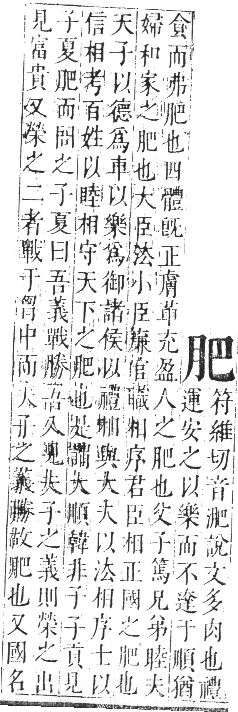 肥
符維切音淝說文多肉也禮
運安之以樂而不達于順猶
食而弗肥也四體旣正膚革充盈人之肥也父子篤兄弟睦夫
婦和家之肥也大臣法小臣廉官職相序君臣相正國之肥也
天子以德爲車以樂爲御諸侯以禮相與大夫以法相序士以
信相考百姓以睦相守天下之肥也是謂大順韓非子子貢見
子夏肥而問之子夏曰吾義戰勝吾入見夫子之義則榮之出
見富貴又榮之二者戰于胷中而夫子之義勝故肥也又國名